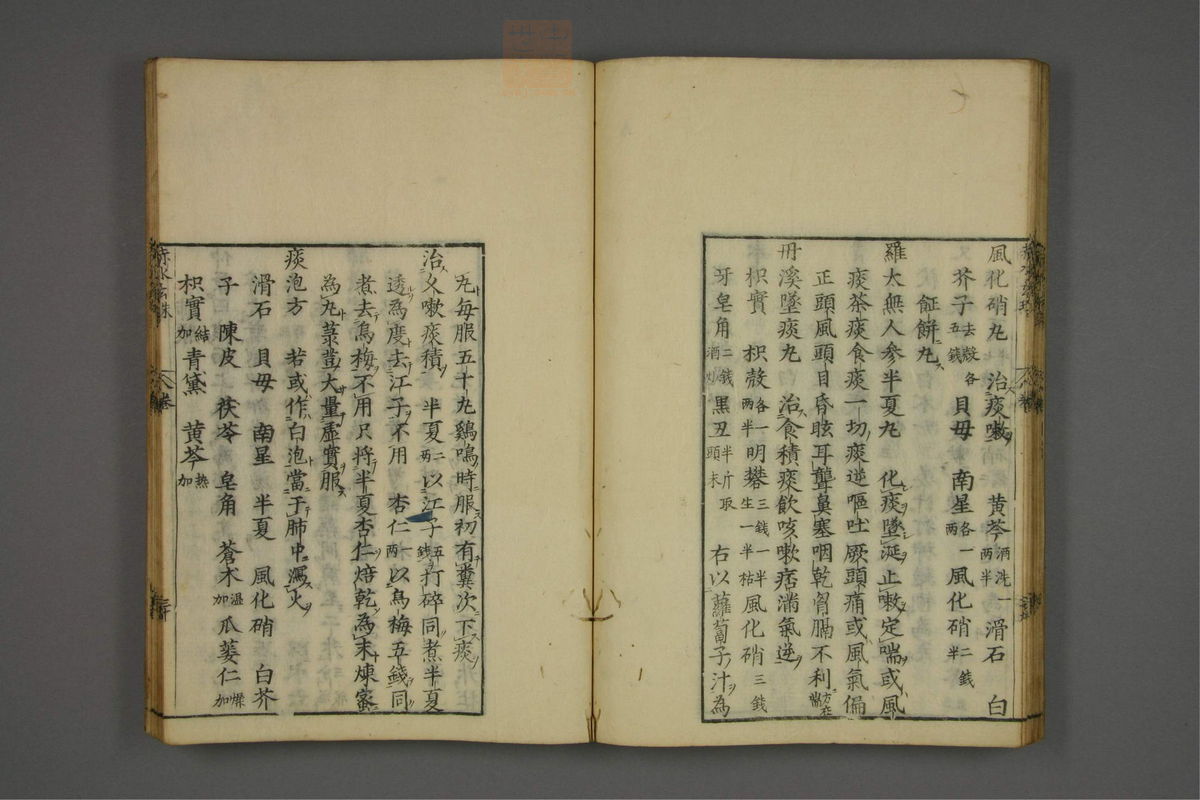 風化硝丸　治痰嗽　黄芩酒洗一両半滑石　白
芥子去殻各五銭貝母　南星各一両風化硝二銭半
䭔餅丸
羅太無人參半夏丸　化痰墜涎止嗽定喘或風
痰茶痰食痰一切痰逆嘔吐厥頭痛或風氣偏
正頭風頭目昏眩耳聾鼻塞咽乾胷膈不利方在喘
丹溪墜痰丸　治食積痰飲咳嗽痞滿氣逆
枳實　枳殼各一両半明礬三錢一半生一半枯風化硝三錢
牙皂角二錢酒炒黒丑半斤取頭末　右以蘿蔔子汁為
丸毎服五十丸鷄鳴時服初有糞次下痰
治久嗽痰積　半夏二両以江子五錢打碎同煮半夏
透為度去江子不用　杏仁一両以烏梅五錢同
煮去烏梅不用只将半夏杏仁焙乾為末煉蜜
為丸菉豈大量虛實服
痰泡方　若或作白泡當于肺中瀉火
滑石　貝母　南星　半夏　風化硝　白芥
子　陳皮　茯苓　皂角　蒼术濕加瓜蔞仁燥加
枳實結加青黛　黄芩熱加